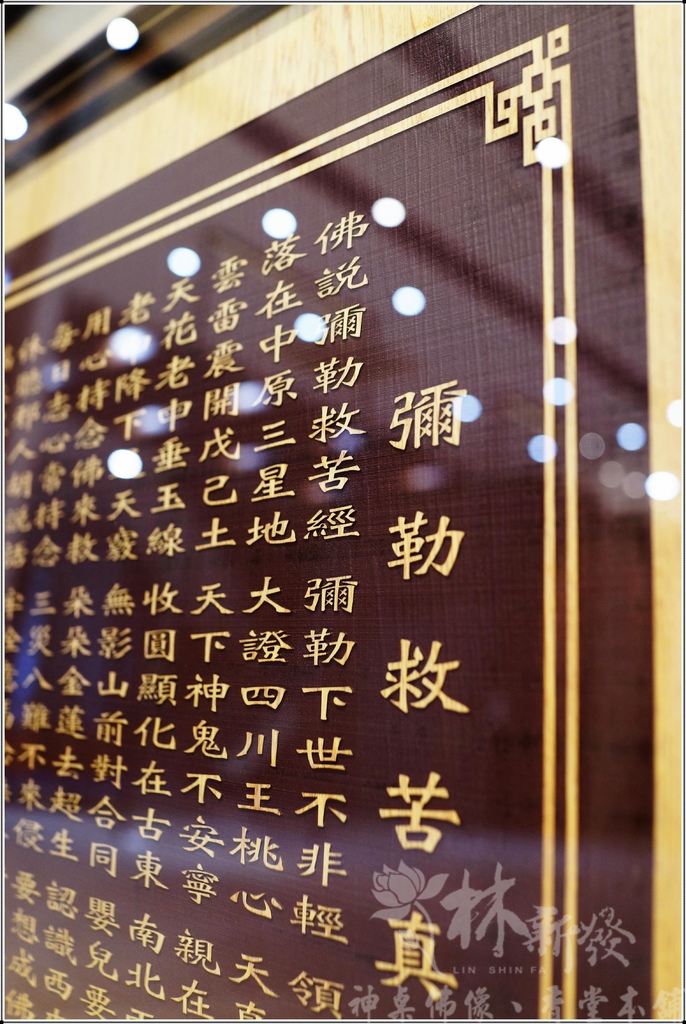 彌勒救苦真
佛説彌勒救苦經 彌勒下世不非輕 領
落在中原三星地 大證四川王桃心 天真
雲雷震開戊己土 天下神鬼不安寧 親在
天花老申垂玉線 收圓顯化在古東 南北
老申降下 天竅 無影山前對合同 嬰兒要
用心持念佛來救 朵朵金蓮去超生 認識西
每日志心常持念 三災八難不來侵 要想成佛
休聽邪人胡説話
林新發
LIN SHIN FA
神桌佛像、香堂本舖